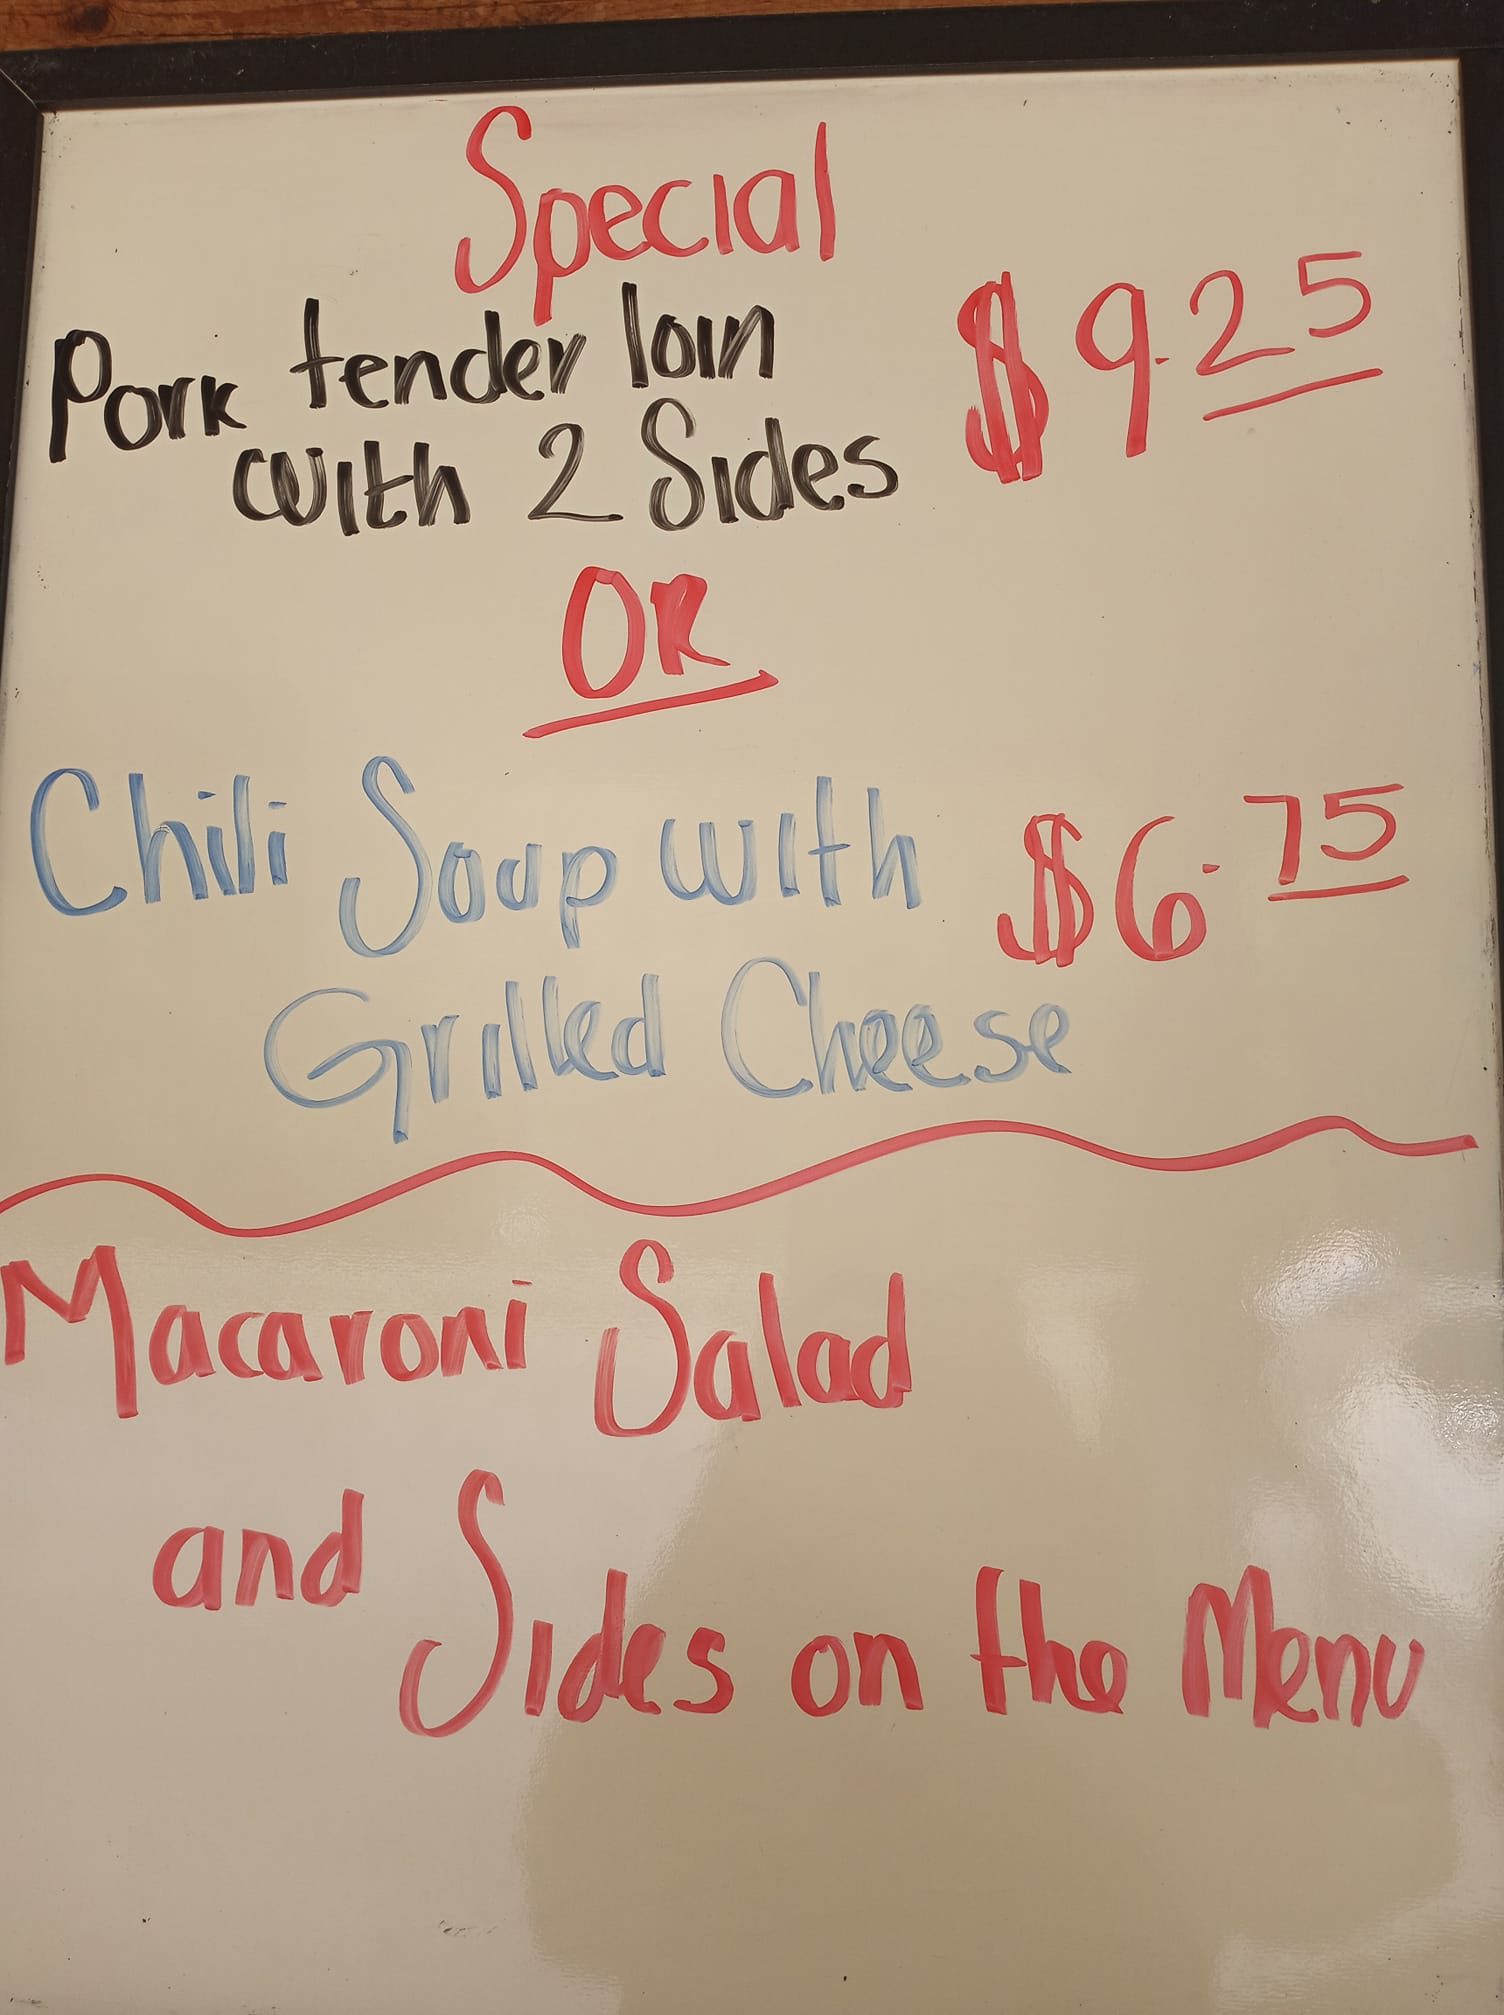 Special
Pork tender loin $9.25
with 2 Sides
OR
Chili Soup with $6.75
Grilled Cheese
Macaroni Salad
and Sides on the Menu